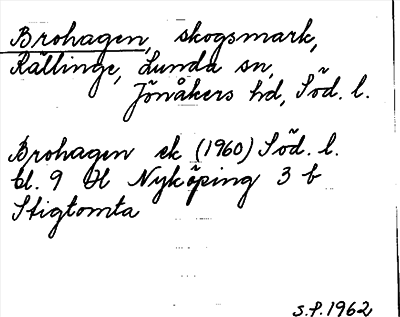 Brohagen, skogsmark,
Källinge, Lunda sn,
Jönåkers hd, Söd. l.
Brohagen ek (1960) Söd. l.
bl. 9 H Nyköping 3 b
Stigtomta
S.P. 1962